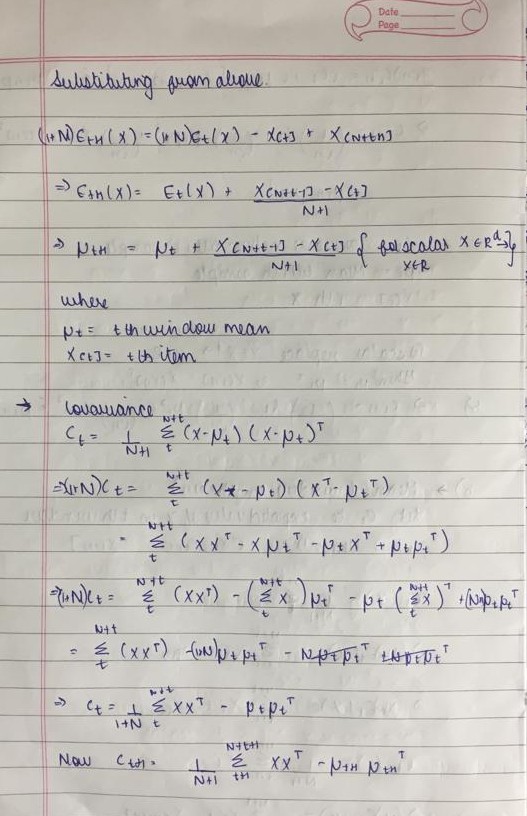 Date
Page
Substituting from above.
(1+N)Et+1(X) = (1+N)Et(X) - X[t] + X[N+t+1]
⇒ Et+1(X) = Et(X) + (X[N+t-1] - X[t]) / N+1
⇒ μt+1 = μt + (X[N+t-1] - X[t]) / N+1 { for scalar X∈R^d → X∈R }
where
μt = t th window mean
X[t] = t th item
→ Covariance
Ct = 1/N+1 Σ_t^{N+t} (X-μt) (X-μt)^T
⇒ (1+N)Ct = Σ_t^{N+t} (X - μt) (X^T - μt^T)
= Σ_t^{N+t} (XX^T - Xμt^T - μtX^T + μtμt^T)
⇒ (1+N)Ct = Σ_t^{N+t} (XX^T) - (Σ_t^{N+t} X) μt^T - μt (Σ_t^{N+t} X)^T + (N+1)μtμt^T
= Σ_t^{N+t} (XX^T) - (1+N)μtμt^T - Nμtμt^T + Nμtμt^T
⇒ Ct = 1/1+N Σ_t^{N+t} XX^T - μtμt^T
Now Ct+1 = 1/N+1 Σ_{t+1}^{N+t+1} XX^T - μt+1 μt+1^T